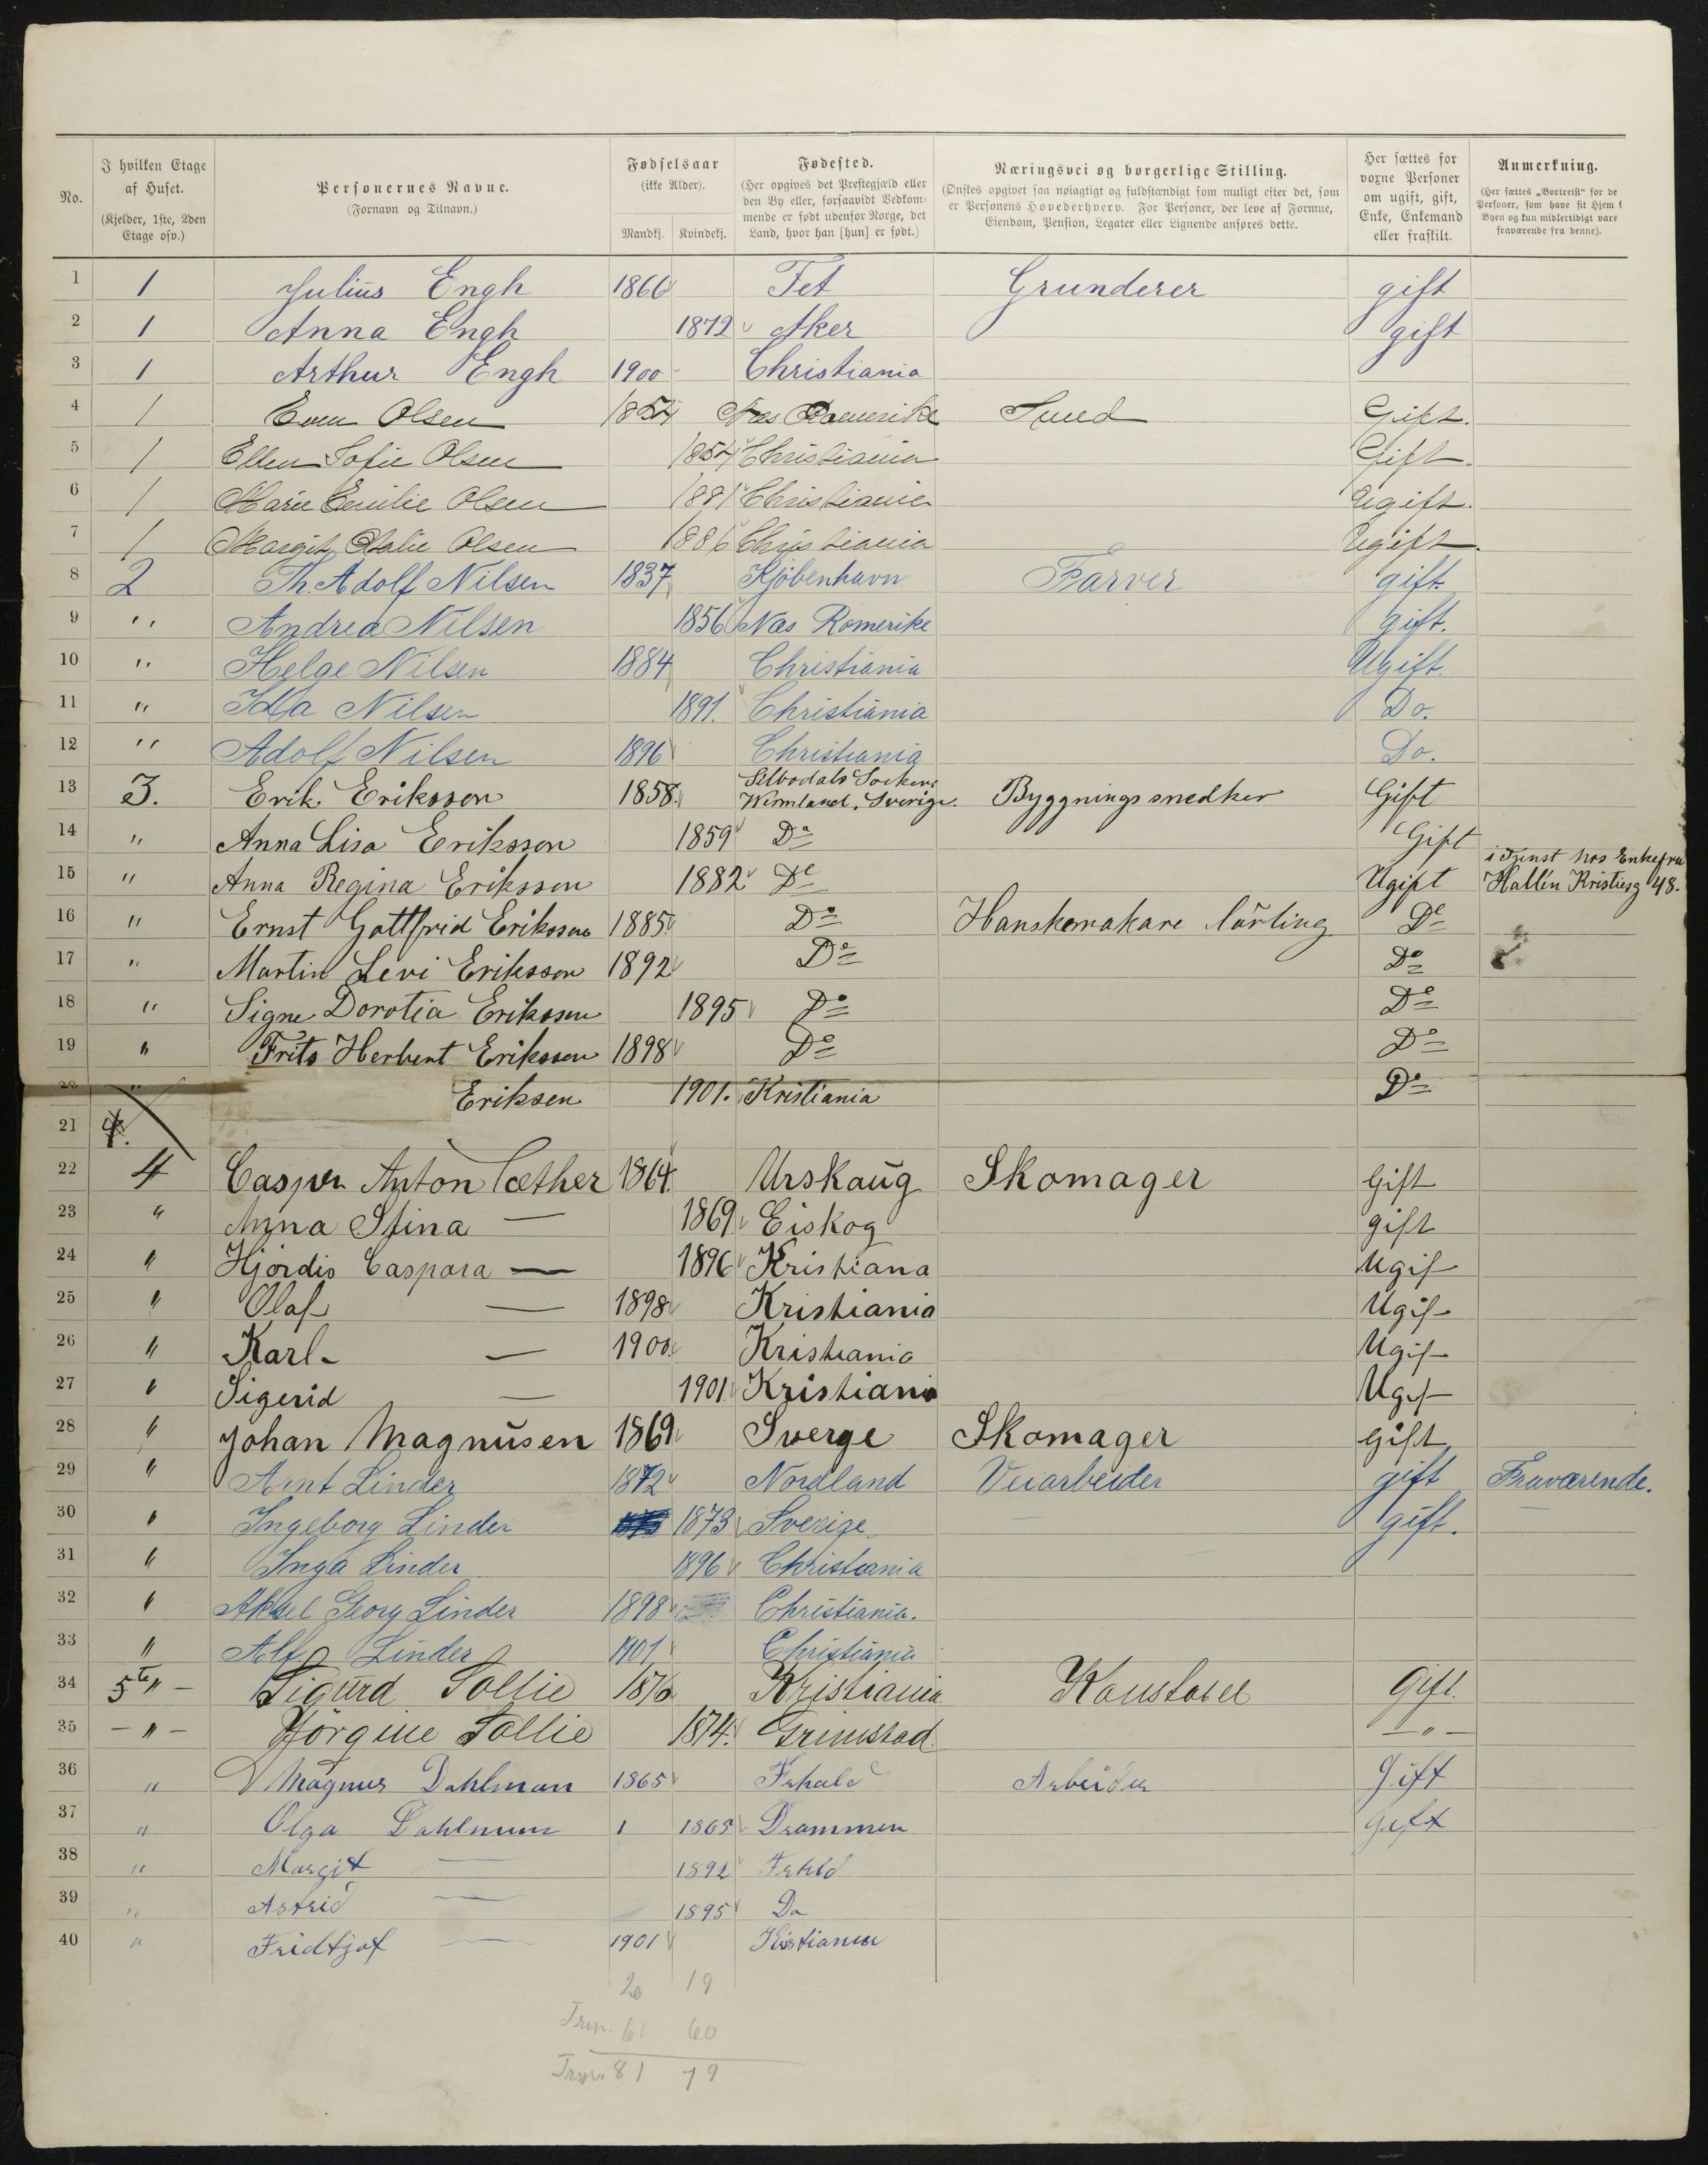 No.
I hvilken Etage af Huset. (Kjelder, 1ste, 2den Etage osv.)
Personernes Navne. (Fornavn og Tilnavn.)
Fødselsaar (ikke Alder). Mandkj. Kvindekj.
Fødested. (Her opgives det Prestegjæld eller den By eller, forsaavidt Vedkommende er født udenfor Norge, det Land, hvor han [hun] er født.)
Næringsvei og borgerlige Stilling. (Ønskes opgivet saa nøiagtigt og fuldstændigt som muligt efter det, som er Personens Hovederhverv. For Personer, der leve af Formue, Eiendom, Pension, Legater eller Lignende anføres dette.
Her sættes for voxne Personer om ugift, gift, Enke, Enkemand eller fraskilt.
Anmerkning. (Her sættes „Bortreist" for de Personer, som have sit Hjem i Byen og kun midlertidigt være fraværende fra denne).
1 1 Julius Engh 1866 Fet Grunderer gift
2 1 Anna Engh 1872 Aker gift
3 1 Arthur Engh 1900 Christiania
4 1 Even Olsen 1854 Næs Romerike Smed Gift.
5 1 Ellen Sofie Olsen 1854 Christiania Gift.
6 1 Marie Emilie Olsen 1881 Christiania Ugift.
7 1 Margit Olsen 1886 Christiania Ugift.
8 2 Th. Adolf Nilsen 1837 Kjøbenhavn Farver gift.
9 " Andrea Nilsen 1856 Næs Romerike gift.
10 " Helge Nilsen 1884 Christiania Ugift.
11 " Ida Nilsen 1891. Christiania Do.
12 " Adolf Nilsen 1896 Christiania Do.
13 3. Erik Eriksson 1858. Silbodals Socken, Wermland, Sverige. Byggnings snedker Gift
14 " Anna Lisa Eriksson 1859 Do Gift
15 " Anna Regina Eriksson 1882 Do Ugift i Tjenst hos Enkefru Hallén Kristiesg 48.
16 " Ernst Gottfrid Eriksson 1885 Do Hanskemakare lärling Do
17 " Martin Levi Eriksson 1892 Do Do
18 " Signe Dorotia Eriksson 1895 Do Do
19 " Frits Herbert Eriksson 1898 Do Do
20 " Eriksen 1901. Kristiania Do
21 4.
22 4 Casper Anton Sæther 1864 Urskaug Skomager Gift
23 " Anna Stina — 1869 Eiskog gift
24 " Hjørdis Caspara — 1896 Kristiana Ugif
25 " Olaf — 1898 Kristiania Ugif
26 " Karl — 1900 Kristiania Ugif
27 " Sigerid — 1901 Kristiania Ugif
28 " Johan Magnusen 1869 Sverge Skomager gift
29 " Arnt Linder 1872 Nordland Veiarbeider gift Fraværende.
30 " Ingeborg Linder 1873 Sverige gift.
31 " Inga Linder 1896 Christiania
32 " Aksel Georg Linder 1898 Christiania.
33 " Alf Linder 1901 Christiania
34 5te " - Sigurd Sollie 1876 Kristiania Konstabel Gift.
35 - " - Jörgine Sollie 1874. Grimstad - " -
36 " Magnus Dahlman 1865 Frhald Arbeider Gift
37 " Olga Dahlman 1 1865 Drammen gift
38 " Margit — 1892 Frhld
39 " Astrid — 1895 Do
40 " Fridtjof — 1901 Kristiania
20 19
Trsp. 61 60
Trsp. 81 79